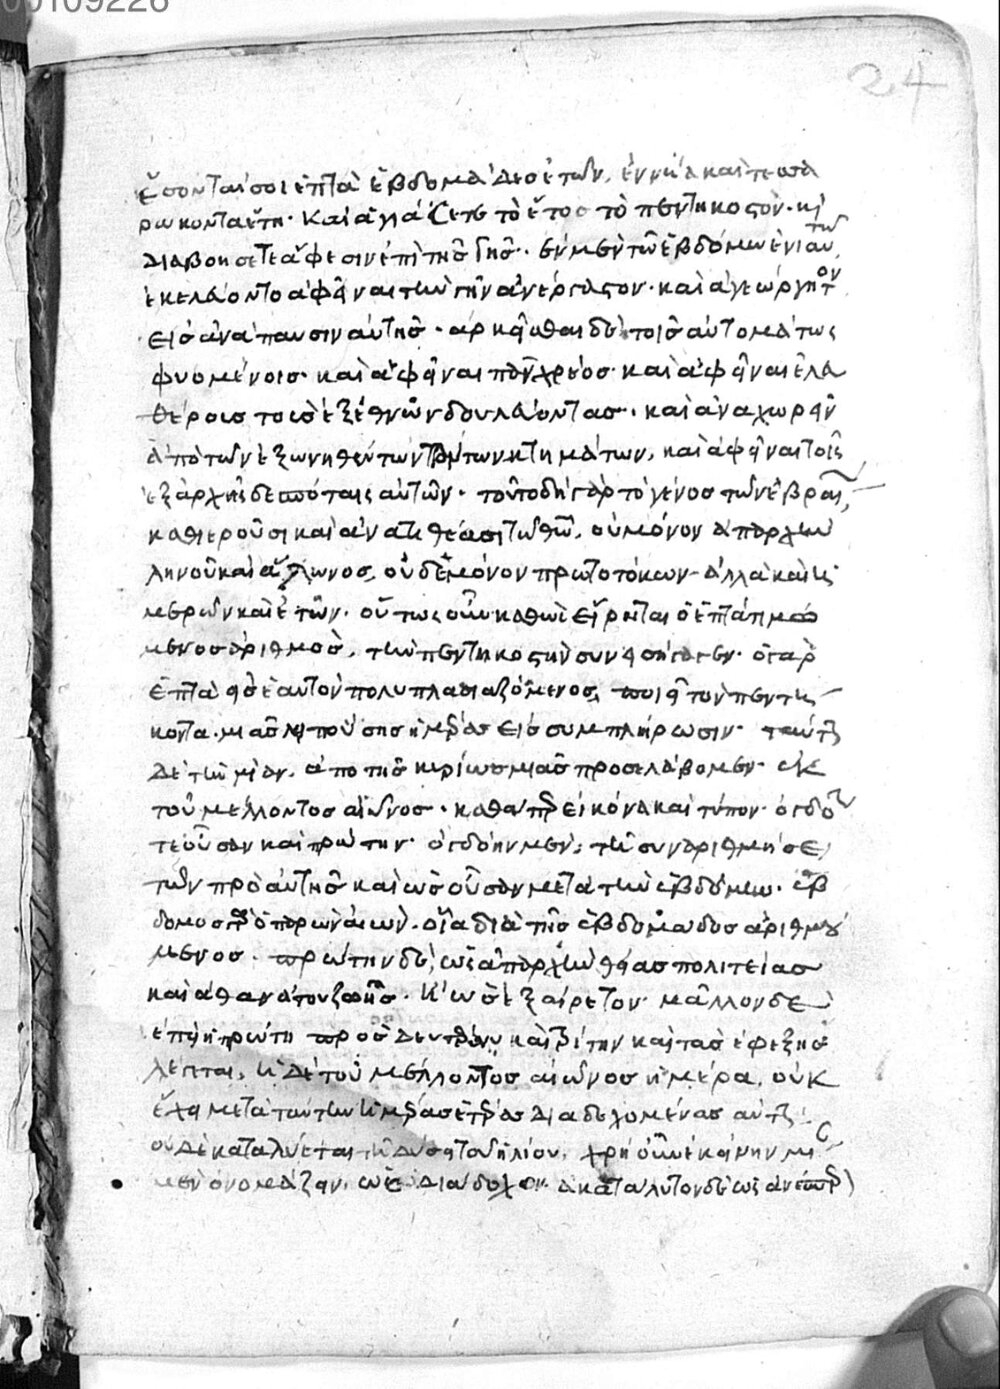 00109226
24
ἔσονται σοι ἑπτὰ ἑβδομάδες ἐτῶν, ἐννέα και τεσσα
ρακοντα ἔτη· Καὶ ἁγιάζετε τὸ ἔτος τὸ πεντηκοστὸν· κ
διαβοήσετε ἄφεσιν ἐπὶ τῆς γῆς· ἐν μεν τῶ ἑβδόμω ἐνιαυτῶ
ἐκελεύοντο ἀφεῖναι τὴν γῆν ἀνέργαστον· καὶ ἀγεώργητον
εἰς ἀνάπαυσιν αὐτῆς· ἀρκεῖσθαι δὲ τοῖς αὐτομάτως
φυομένοις· καὶ ἀφεῖναι χρέος· καὶ ἀφεῖναι ἐλευ
θέροις τοὺς ἐξ ἐθνῶν δουλεύοντας· καὶ ἀναχωρεῖν
ἀπὸ τῶν ἐξωνηθέντων κτημάτων, καὶ ἀφεῖναι τοῖς
ἐξ ἀρχῆς δεσπόταις αὐτῶν· τοῦτο δὴ γὰρ τὸ γένος τῶν ἑβραί
καθιεροῦσι καὶ ἀνατιθέασι τῶ θῶ, οὐ μόνον ἀπαρχὴν
ληνοῦ καὶ ἅλωνος, οὐδὲ μόνον πρωτοτόκων ἀλλὰ καὶ ἡ
μερῶν καὶ ἐτῶν· οὕτως οὖν καθὼς εἴρηται ὁ ἑπτὰ τιμώ
μενος ἀριθμὸς, τὴν πεντηκοστὴν συνεισήγαγεν· ὁ γὰρ
ἑπτὰ εἰς ἑαυτὸν πολυπλασιαζόμενος, ποιεῖ τὸν πεντή
κοντα· μιᾶς λειπούσης ἡμέρας εἰς συμπλήρωσιν· ταύτην
δὲ τὴν μίαν, ἀπὸ τῆς κυρίως μιᾶς προσελάβομεν· ἐκ
τοῦ μέλλοντος αἰῶνος· καθάπερ εἰκόνα καὶ τύπον· ὀγδόην
τε οὖσαν καὶ πρώτην· ὀγδόην μεν, τῆ συναριθμήσει
τῶν πρὸ αὐτῆς καὶ ὡς οὖσαν μετὰ τὴν ἑβδόμην· ἕβ
δομος γὰρ ὁ παρὼν αἰών· οἷα διὰ τῆς ἑβδομάδος ἀριθμού
μενος· πρώτην δὲ, ὡς ἀπαρχὴν θείας πολιτείας
καὶ ἀθανάτου ζωῆς· κ ὡς ἐξαίρετον· μᾶλλον δὲ
ἐπεὶ ἡ πρώτη πρὸς δευτέραν καὶ τρίτην καὶ τὰς ἐφεξῆς
λέγεται, ἡ δὲ τοῦ μέλλοντος αἰῶνος ἡμέρα, οὐκ
ἔχει μετὰ ταύτην ἡμέρας ἑτέρας διαδεχομένας αὐτὴν
οὐδὲ καταλύεται τῆ δύσει τοῦ ἡλίου, χρὴ οὖν ἐκείνην μι
μεν ὀνομάζειν, ὡς ἀδιάδοχον· ἀκατάλυτον δὲ ὡς ἀνέσπερ